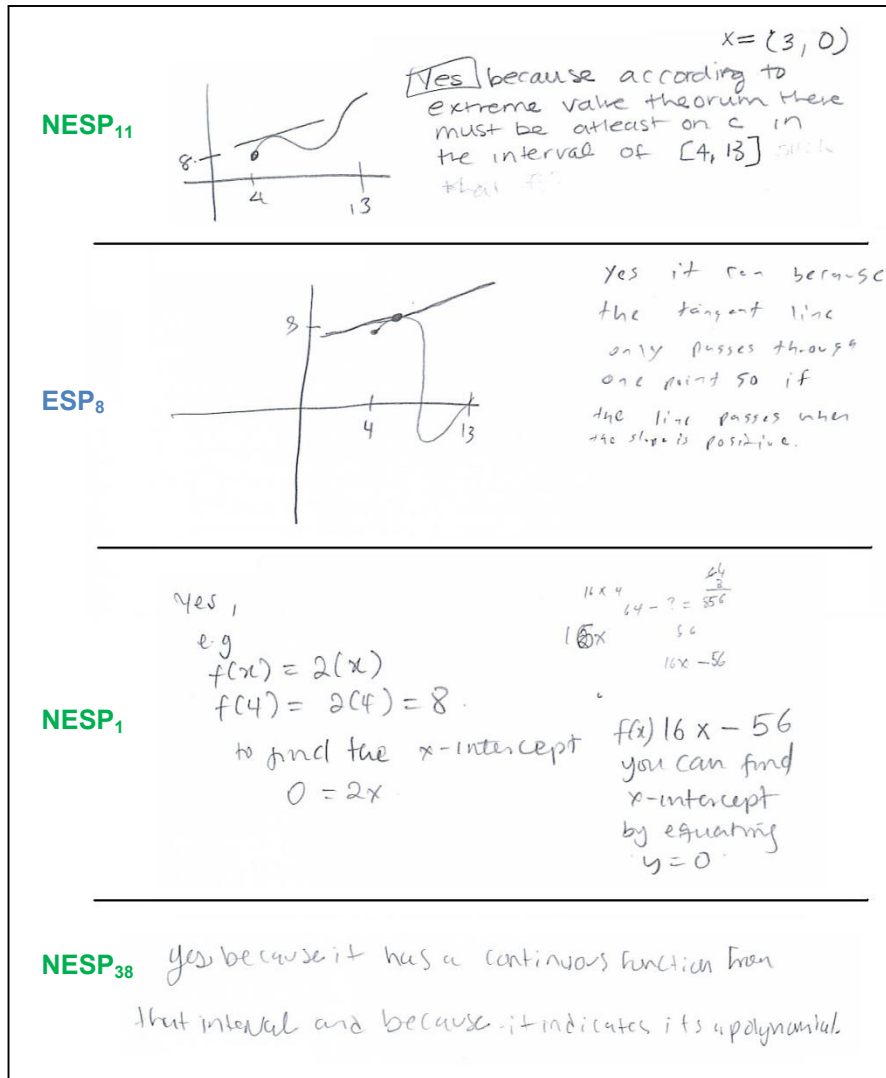 NESP11
x = (3, 0)
Yes because according to
extreme value theorum there
must be atleast on c in
the interval of [4, 13] such
that
8
4
13
ESP8
8
4
13
yes it can because
the tangent line
only passes through
one point so if
the line passes when
the slope is positive.
NESP1
yes,
e.g
f(x) = 2(x)
f(4) = 2(4) = 8.
to find the x-intercept
0 = 2x
16 x 4
64 - ? =
56
16x - 56
f(x) 16x - 56
you can find
x-intercept
by equating
y = 0.
NESP38
yes, because it has a continuous function from
that interval and because it indicates its a polynomial.